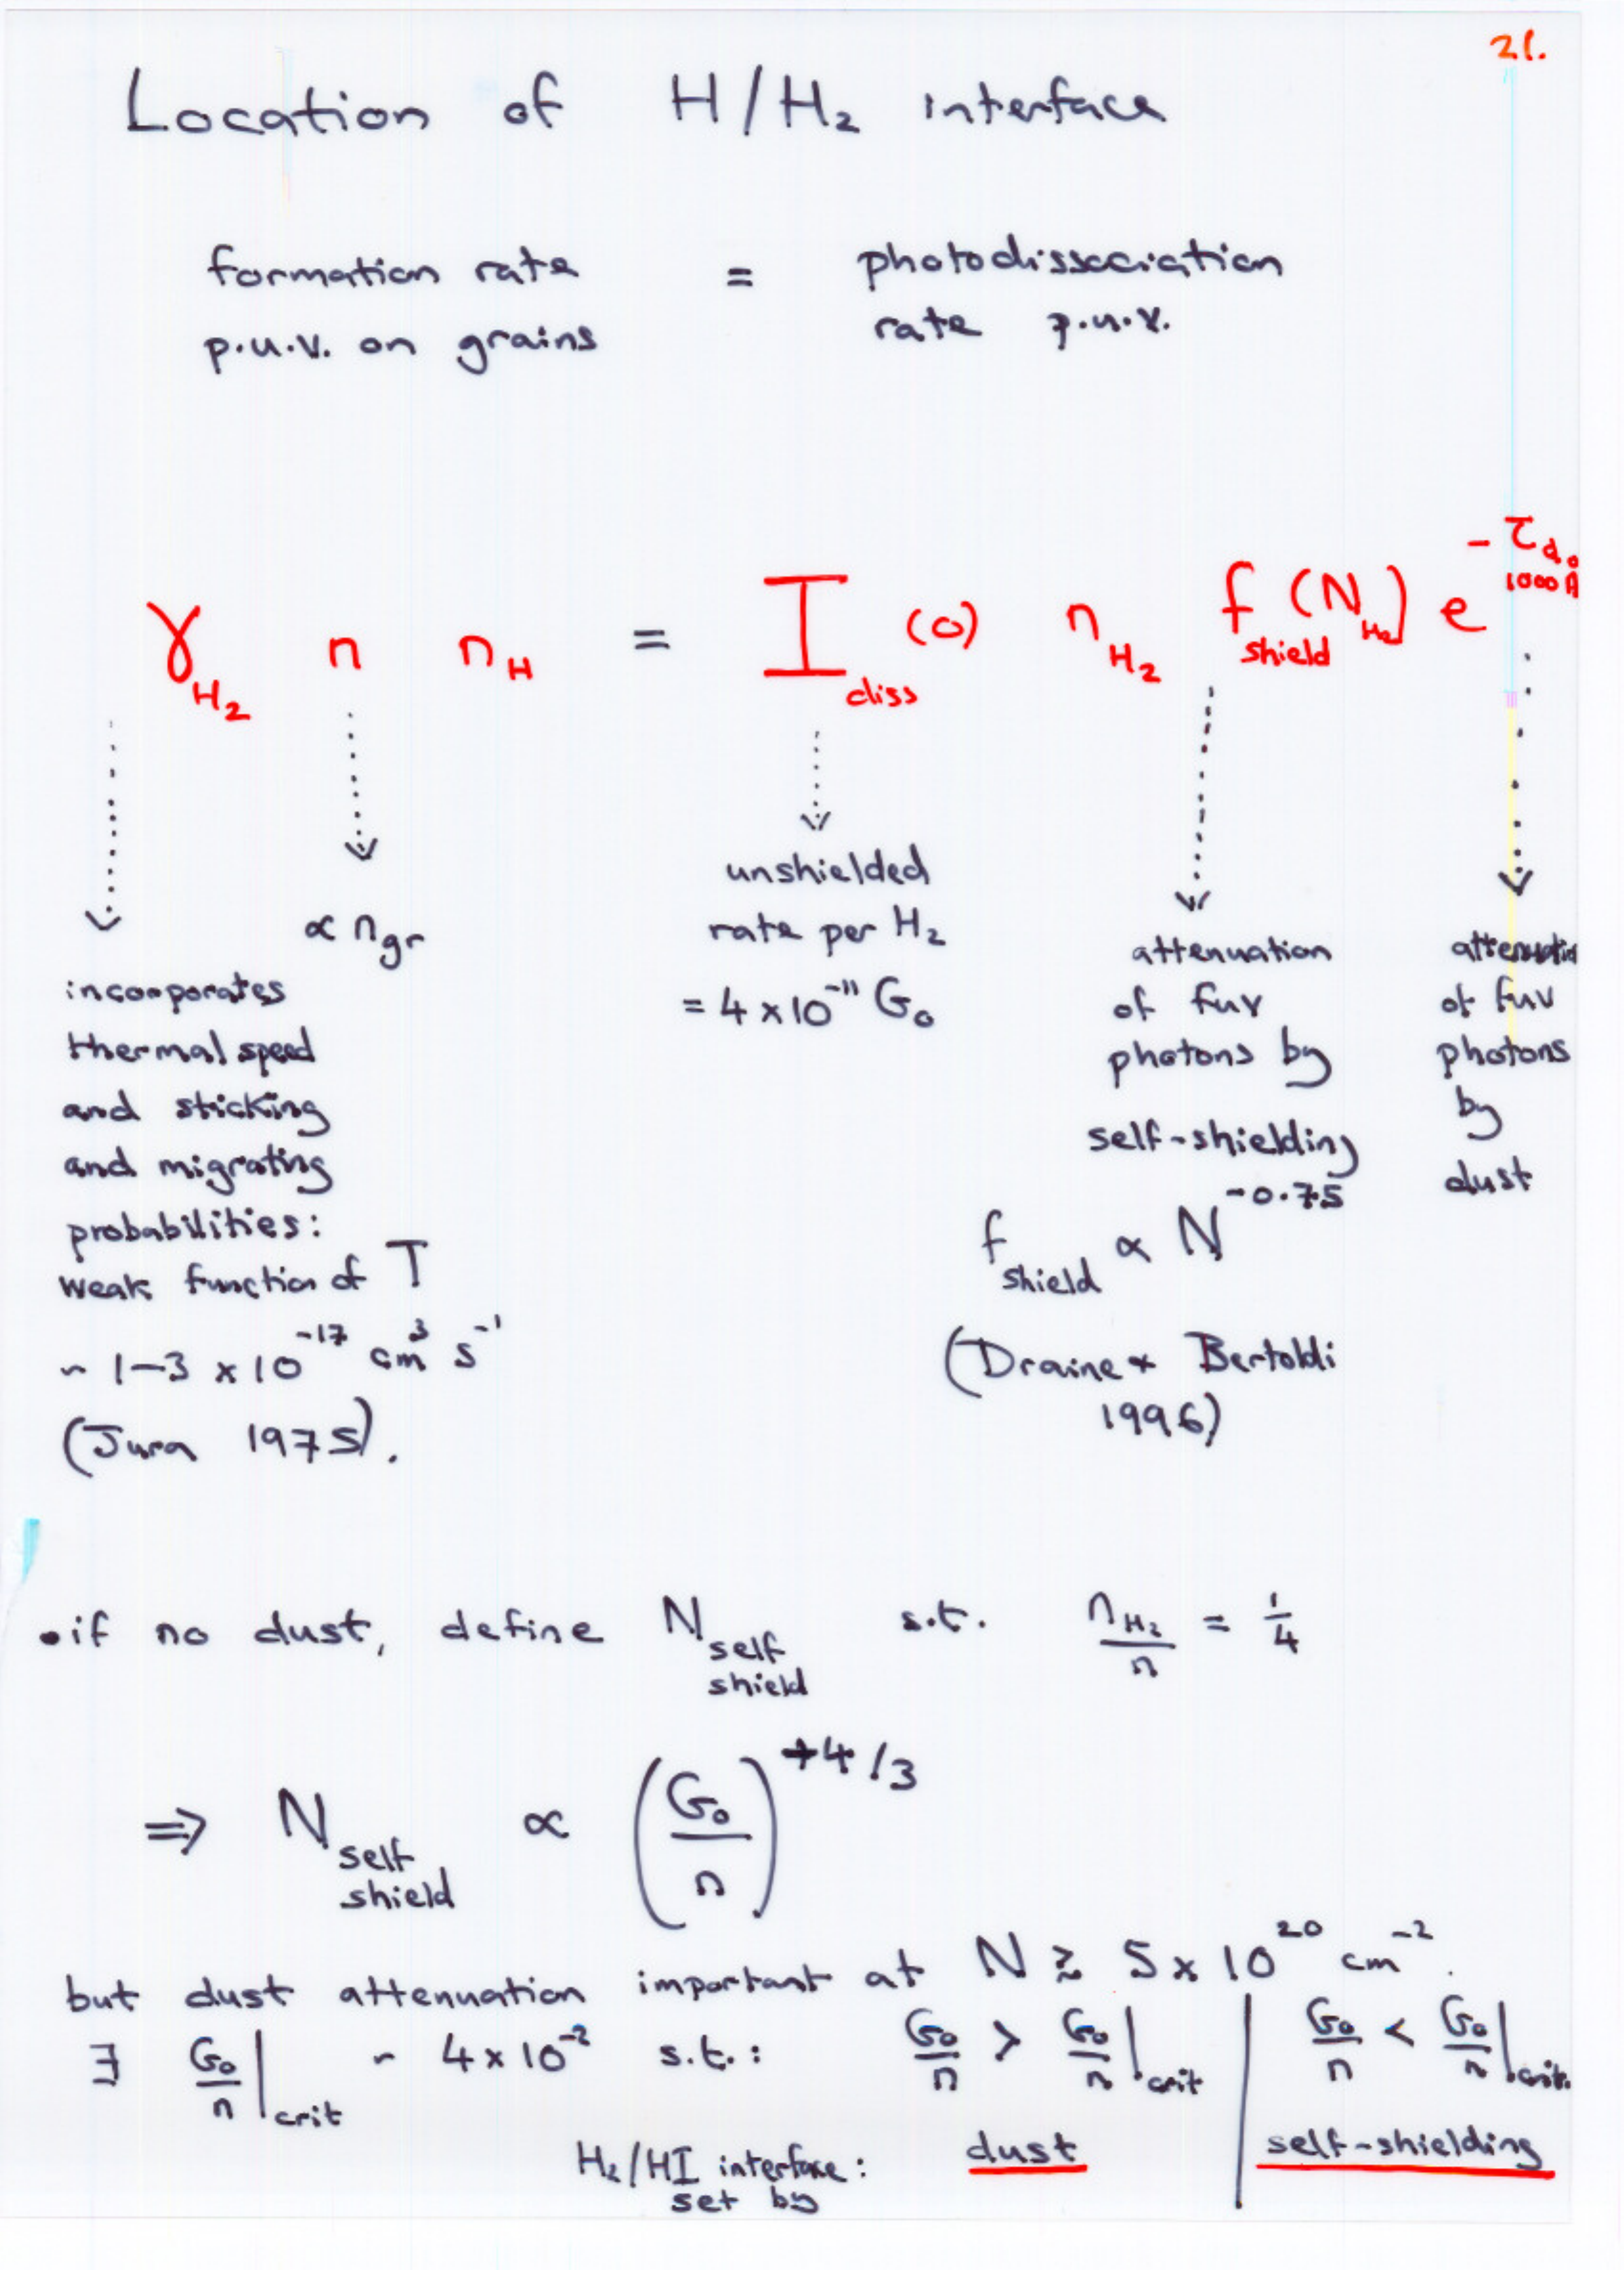 21.
Location of H/H₂ interface
formation rate = photodissociation
p.u.v. on grains rate p.u.v.
γ_H₂ n n_H = I_diss (0) n_H₂ f_shield (N_H₂) e^-τ_d,1000Å
∝ n_gr
incorporates
thermal speed
and sticking
and migrating
probabilities:
weak function of T
~ 1–3 × 10⁻¹⁷ cm³ s⁻¹
(Jura 1975).
unshielded
rate per H₂
= 4 × 10⁻¹¹ G₀
attenuation
of fuv
photons by
self-shielding
f_shield ∝ N^-0.75
(Draine & Bertoldi
1996)
attenuation
of fuv
photons
by
dust
• if no dust, define N_self shield s.t. n_H₂/n = 1/4
⇒ N_self shield ∝ (G₀/n)^+4/3
but dust attenuation important at N ≳ 5 × 10²⁰ cm⁻².
∃ G₀/n|crit ~ 4 × 10⁻² s.t.: G₀/n > G₀/n|crit | G₀/n < G₀/n|crit.
H₂/HI interface: dust self-shielding
set by